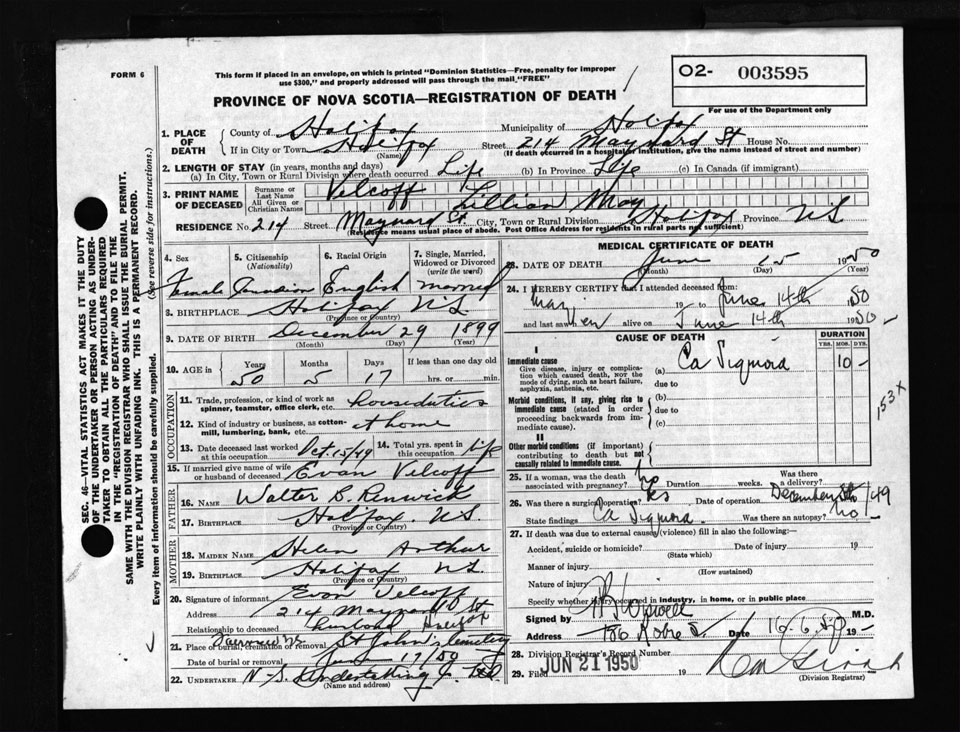 FORM 6
This form if placed in an envelope, on which is printed "Dominion Statistics—Free, penalty for improper
use $300," and properly addressed will pass through the mail "FREE"
02- 003595
For use of the Department only
PROVINCE OF NOVA SCOTIA—REGISTRATION OF DEATH
1. PLACE OF DEATH
County of Halifax Municipality of Halifax
If in City or Town Halifax (Name) Street 214 Maynard St House No.
(If death occurred in a hospital or institution, give the name instead of street and number)
2. LENGTH OF STAY (in years, months and days)
(a) In City, Town or Rural Division where death occurred Life (b) In Province Life (c) In Canada (if immigrant)
3. PRINT NAME OF DECEASED
Surname or Last Name Velcoff
All Given or Christian Names Lillian May
RESIDENCE No. 214 Street Maynard St. City, Town or Rural Division Halifax Province N S
(Residence means usual place of abode. Post Office Address for residents in rural parts not sufficient)
4. Sex 5. Citizenship (Nationality) 6. Racial Origin 7. Single, Married, Widowed or Divorced (write the word)
Female Canadian English married
8. BIRTHPLACE Halifax N S
(Province or Country)
9. DATE OF BIRTH December 29 1899
(Month) (Day) (Year)
10. AGE in Years Months Days If less than one day old
50 5 17 hrs. or min.
OCCUPATION
11. Trade, profession, or kind of work as spinner, teamster, office clerk, etc. Houseduties
12. Kind of industry or business, as cotton-mill, lumbering, bank, etc. at home
13. Date deceased last worked at this occupation Oct. 15/49 14. Total yrs. spent in this occupation life
15. If married give name of wife or husband of deceased Evan Velcoff
FATHER
16. NAME Walter B. Renwick
17. BIRTHPLACE Halifax N.S.
(Province or Country)
MOTHER
18. MAIDEN NAME Helen Arthur
19. BIRTHPLACE Halifax N S.
(Province or Country)
20. Signature of informant Evan Velcoff
Address 214 Maynard St
Relationship to deceased husband Halifax
21. Place of burial, cremation or removal Fairview N.S. St John's Cemetery
Date of burial or removal June 17/50
22. UNDERTAKER N. S. Undertaking Co. Ltd
(Name and address)
MEDICAL CERTIFICATE OF DEATH
23. DATE OF DEATH June 15 1950
(Month) (Day) (Year)
24. I HEREBY CERTIFY that I attended deceased from:
May 19 to June 14th 1950
and last saw her alive on June 14th 1950
CAUSE OF DEATH DURATION
YRS. MOS. DYS.
I
Immediate cause
Give disease, injury or complication which caused death, not the mode of dying, such as heart failure, asphyxia, asthenia, etc.
(a) Ca Sigmoid 10 -
due to
Morbid conditions, if any, giving rise to immediate cause (stated in order proceeding backwards from immediate cause).
(b)
due to
(c)
153 X
II
Other morbid conditions (if important) contributing to death but not causally related to immediate cause.
25. If a woman, was the death associated with pregnancy? no Duration weeks. Was there a delivery?
26. Was there a surgical operation? yes Date of operation December 5th /49
State findings Ca Sigmoid. Was there an autopsy? no
27. If death was due to external causes (violence) fill in also the following:
Accident, suicide or homicide? Date of injury 19
(State which)
Manner of injury
(How sustained)
Nature of injury
Specify whether injury occurred in industry, in home, or in public place
Signed by M.D.
Address 186 Date 16-6-50 19
28. Division Registrar's Record Number
29. Filed JUN 21 1950 19
(Division Registrar)
SEC. 46—VITAL STATISTICS ACT MAKES IT THE DUTY
OF THE UNDERTAKER OR PERSON ACTING AS UNDER-
TAKER TO OBTAIN ALL THE PARTICULARS REQUIRED
IN THE "REGISTRATION OF DEATH" AND TO FILE THE
SAME WITH THE DIVISION REGISTRAR WHO SHALL ISSUE THE BURIAL PERMIT.
WRITE PLAINLY WITH UNFADING INK. THIS IS A PERMANENT RECORD.
Every item of information should be carefully supplied. (See reverse side for instructions.)